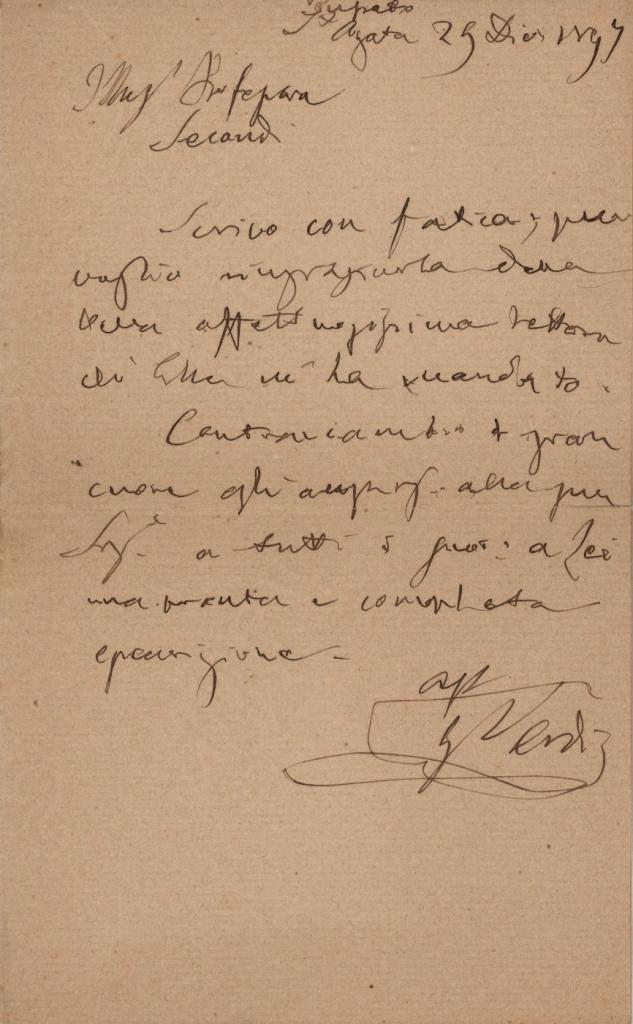 Busseto
St Agata 29 Dic 1897
Illus.e Professore
Secondi
Scrivo con fatica; pure
voglio ringraziarla della
Sua affettuosissima lettera
che Ella m'ha mandato.
Contraccambio di gran
cuore gli auguri alla sua
Sig.a a tutti i suoi: a Lei
una pronta e completa
guarigione -
G Verdi